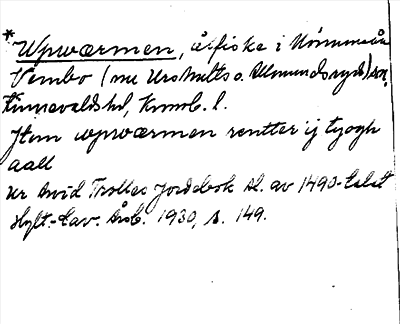 * Wpwærmen, ålfiske i Mörrumsån
Vembo (nu Urshults o. Almundsryds) sn,
Kinnevalds hd, Kronob. l.
Item wpwærmen rentter ij tyogh
aall
Ur Arvid Trolles Jordebok sl. av 1490-talet
Hylt.-Cav. Årsb. 1930, s. 149.